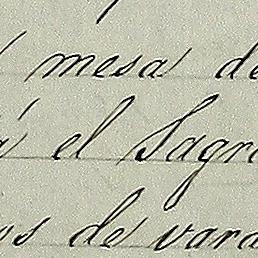 mesa de
á el Sagra
os de vara